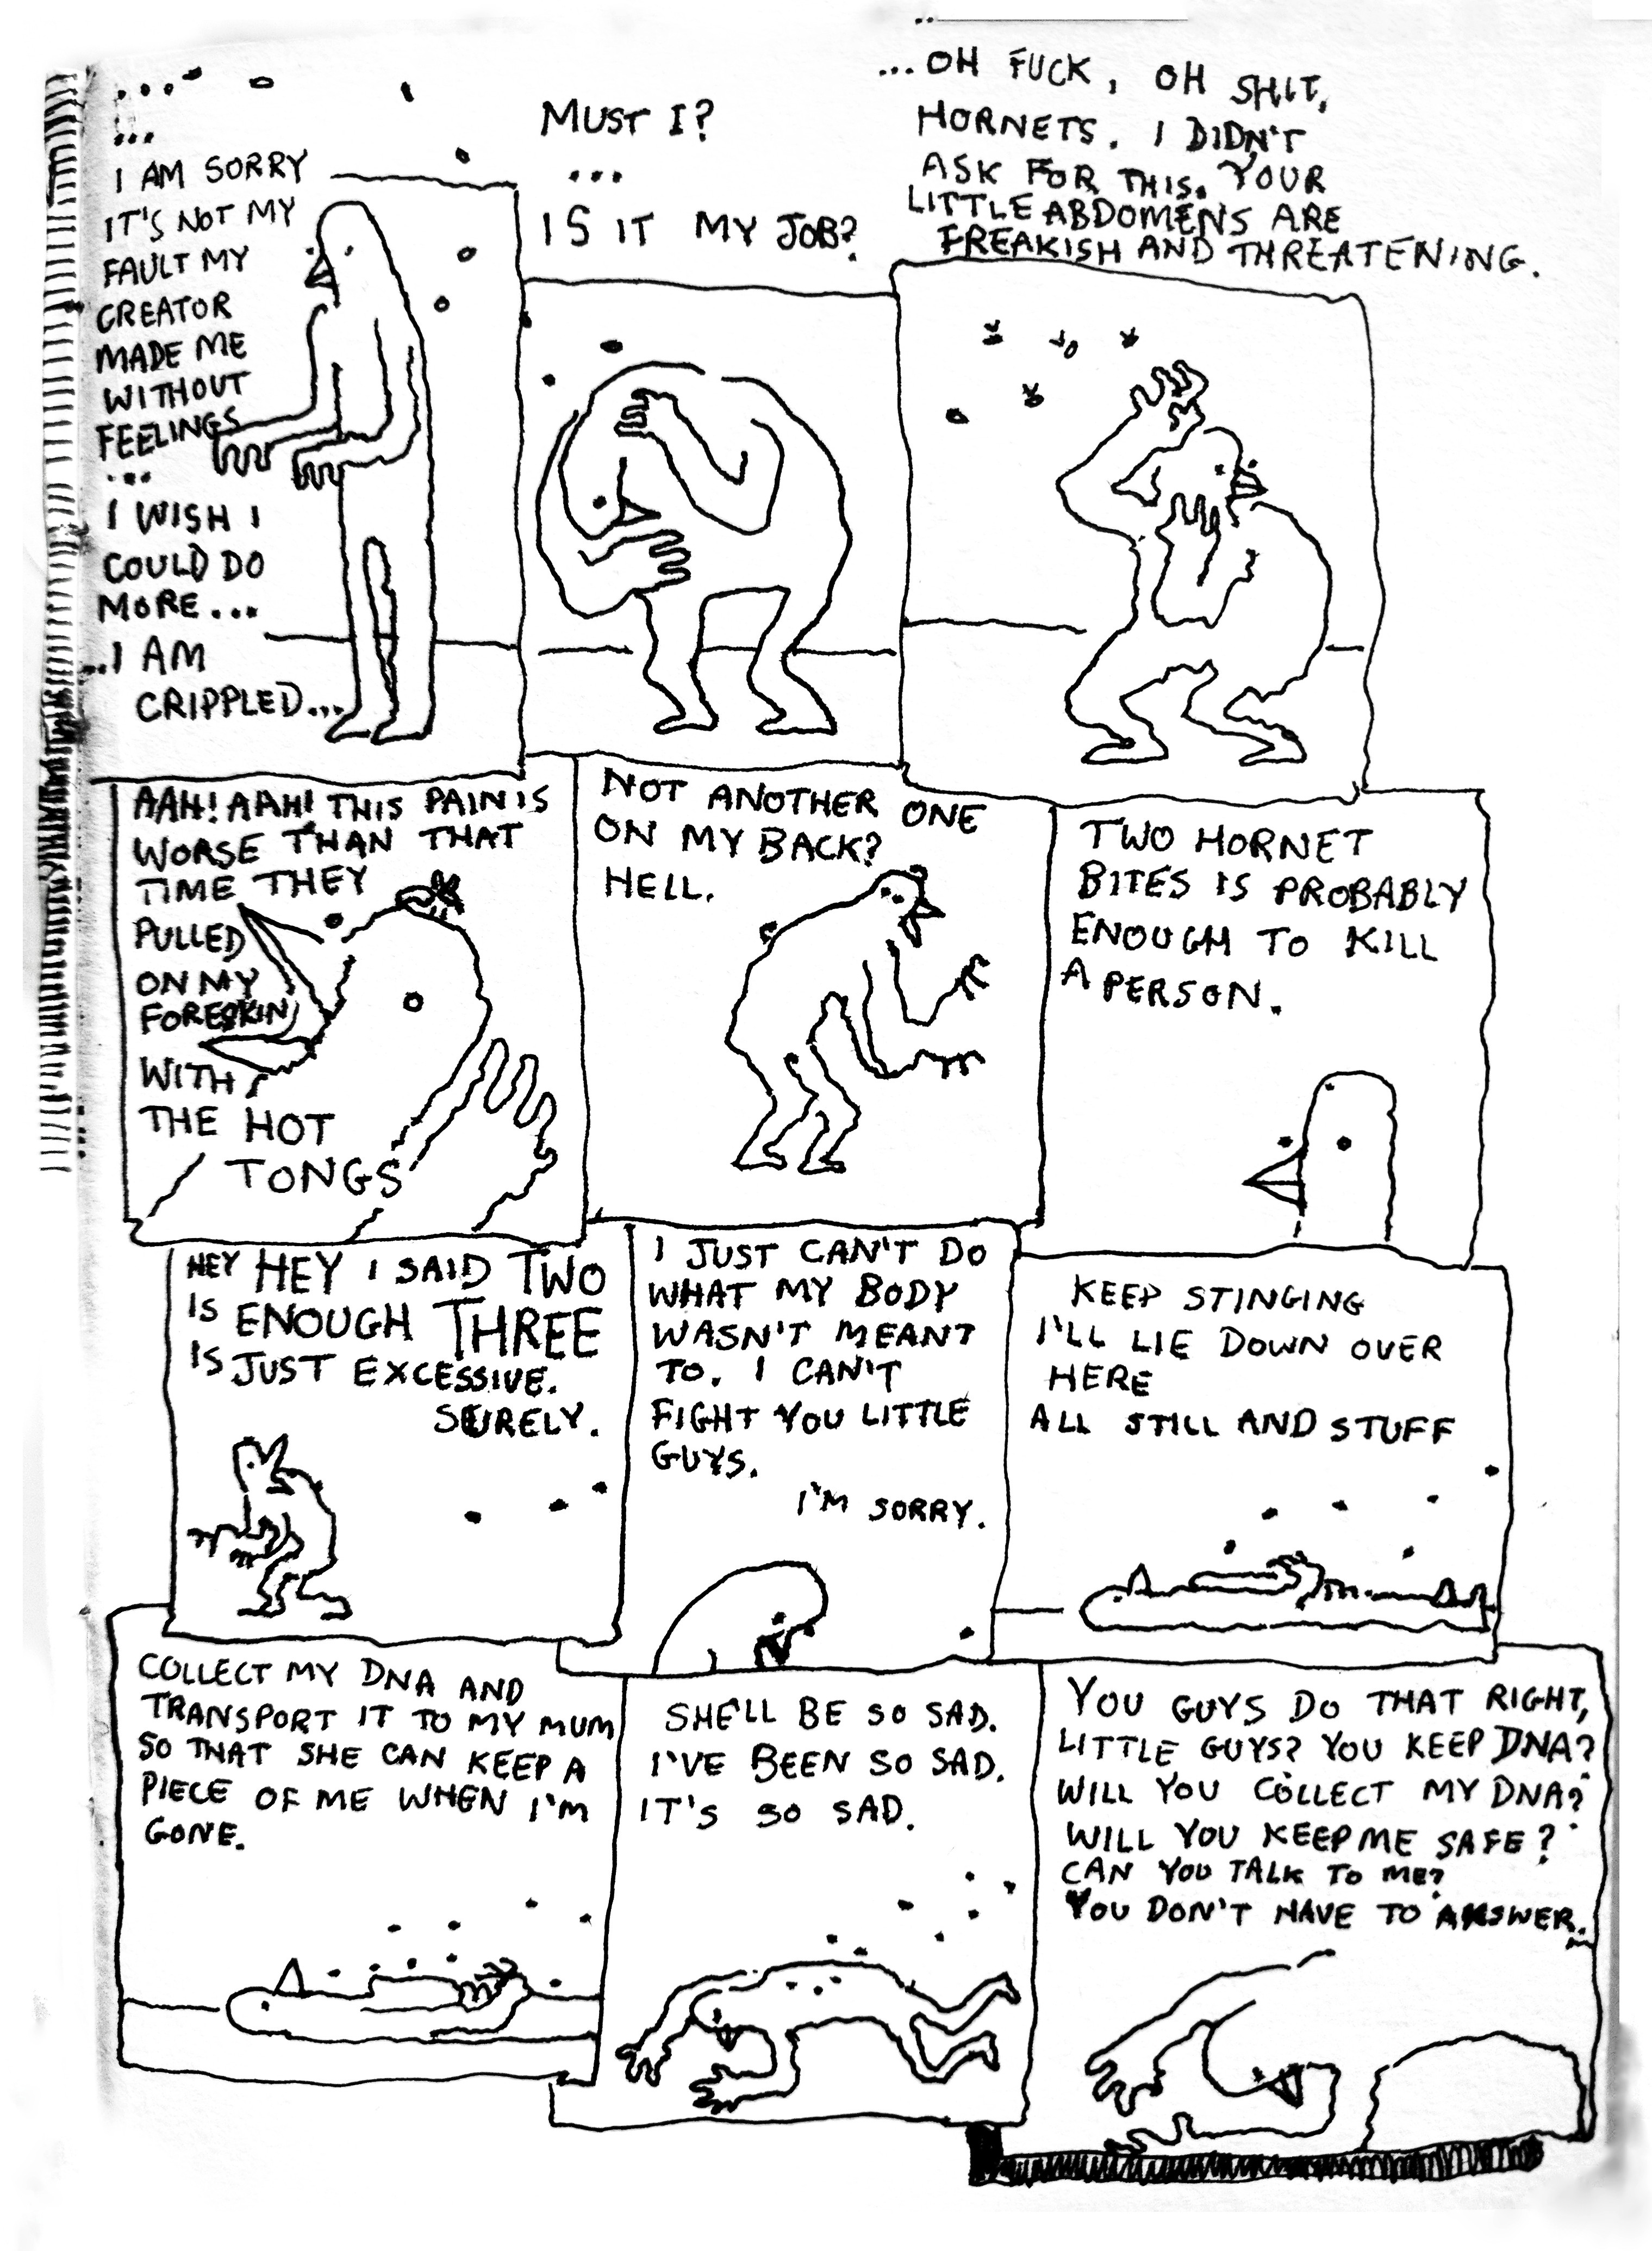 ...
...
I AM SORRY
IT'S NOT MY
FAULT MY
CREATOR
MADE ME
WITHOUT
FEELINGS
...
I WISH I
COULD DO
MORE...
...I AM
CRIPPLED...
MUST I?
...
IS IT MY JOB?
...OH FUCK, OH SHIT,
HORNETS. I DIDN'T
ASK FOR THIS. YOUR
LITTLE ABDOMENS ARE
FREAKISH AND THREATENING.
AAH! AAH! THIS PAIN IS
WORSE THAN THAT
TIME THEY
PULLED
ON MY
FORESKIN
WITH
THE HOT
TONGS
NOT ANOTHER ONE
ON MY BACK?
HELL.
TWO HORNET
BITES IS PROBABLY
ENOUGH TO KILL
A PERSON.
HEY HEY I SAID TWO
IS ENOUGH THREE
IS JUST EXCESSIVE.
SURELY.
I JUST CAN'T DO
WHAT MY BODY
WASN'T MEANT
TO. I CAN'T
FIGHT YOU LITTLE
GUYS.
I'M SORRY.
KEEP STINGING
I'LL LIE DOWN OVER
HERE
ALL STILL AND STUFF
COLLECT MY DNA AND
TRANSPORT IT TO MY MUM
SO THAT SHE CAN KEEP A
PIECE OF ME WHEN I'M
GONE.
SHE'LL BE SO SAD.
I'VE BEEN SO SAD.
IT'S SO SAD.
YOU GUYS DO THAT RIGHT,
LITTLE GUYS? YOU KEEP DNA?
WILL YOU COLLECT MY DNA?
WILL YOU KEEP ME SAFE?
CAN YOU TALK TO ME?
YOU DON'T HAVE TO ANSWER.